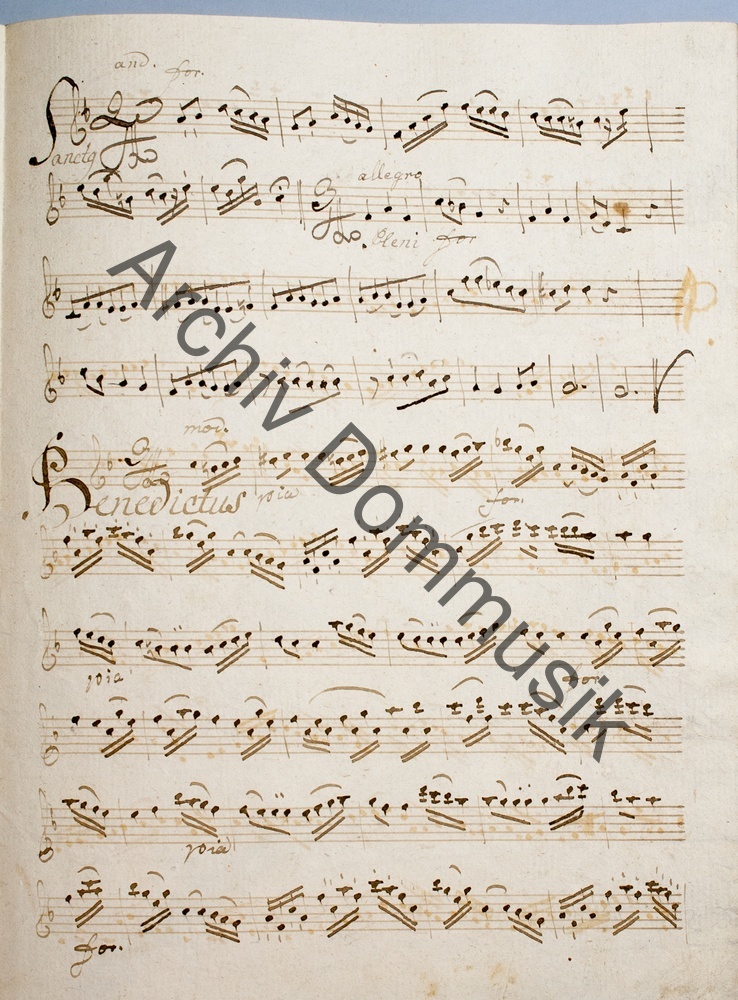 and. for.
Sanctq
allegro
Pleni for
mod.
Benedictus pia for.
pia for.
pia
for.
Archiv Dommusik